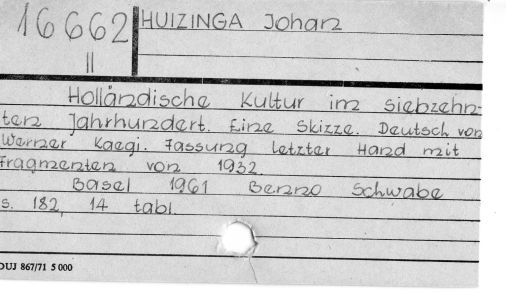 16662 HUIZINGA Johan
II
Holländische Kultur im siebzehn-
ten Jahrhundert. Eine Skizze. Deutsch von
Werner Kaegi. Fassung letzter Hand mit
Fragmenten von 1932.
Basel 1961 Benno Schwabe
s. 182, 14 tabl.
DUJ 867/71 5 000